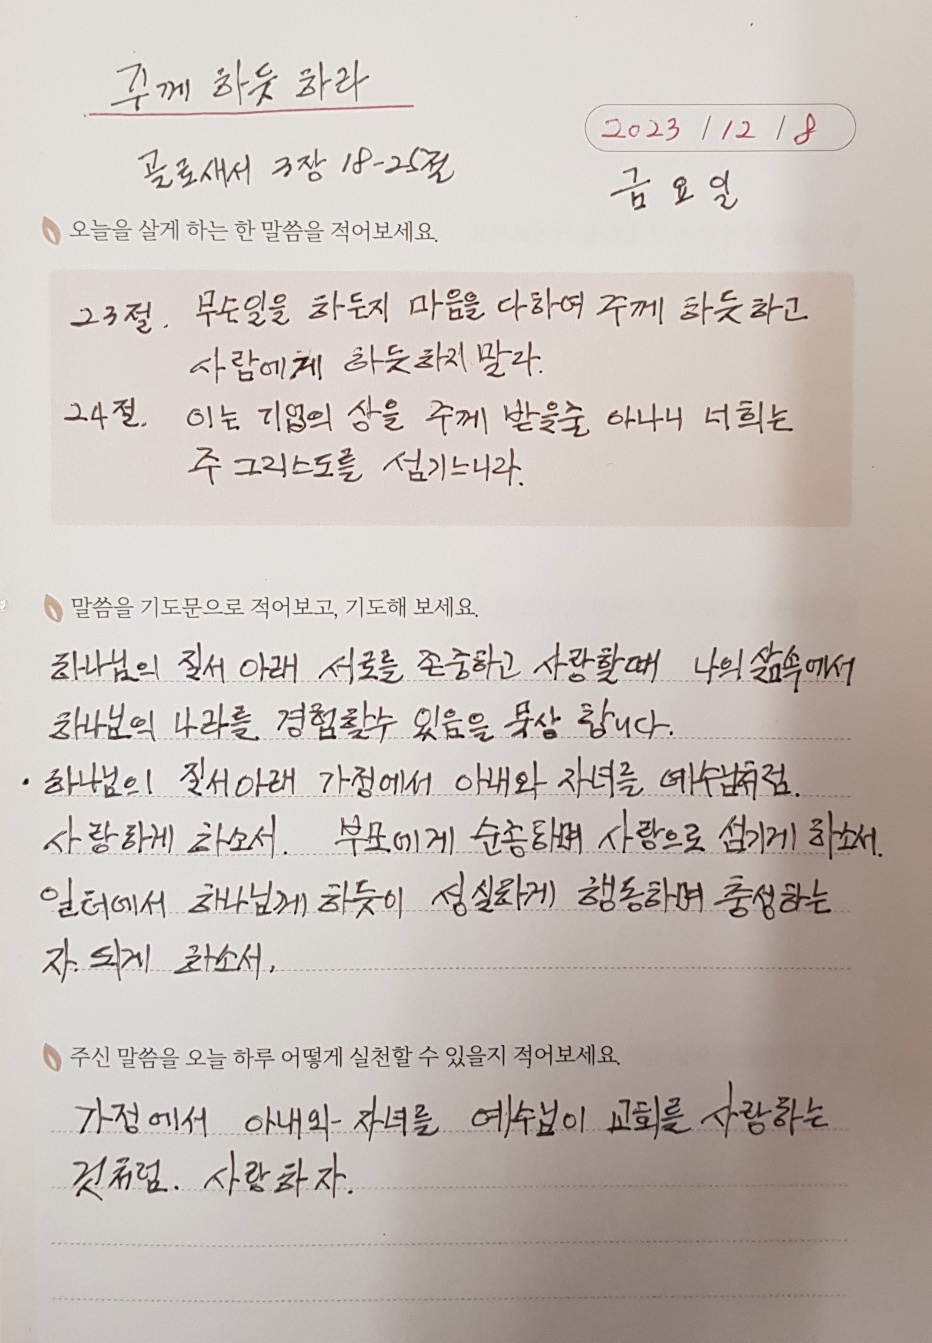 주께 하듯 하라
2023 / 12 / 8
골로새서 3장 18-25절
금요일
오늘을 살게 하는 한 말씀을 적어보세요.
23절. 무슨일을 하든지 마음을 다하여 주께 하듯하고
사람에게 하듯하지말라.
24절. 이는 기업의 상을 주께 받을줄 아나니 너희는
주 그리스도를 섬기느니라.
말씀을 기도문으로 적어보고, 기도해 보세요.
하나님의 질서 아래 서로를 존중하고 사랑할때 나의 삶속에서
하나님의 나라를 경험할수 있음을 묵상 합니다.
· 하나님의 질서아래 가정에서 아내와 자녀를 예수님처럼.
사랑하게 하소서. 부모에게 순종하며 사랑으로 섬기게 하소서.
일터에서 하나님께 하듯이 성실하게 행동하며 충성하는
자. 되게 하소서.
주신 말씀을 오늘 하루 어떻게 실천할 수 있을지 적어보세요.
가정에서 아내와 자녀를 예수님이 교회를 사랑하는
것처럼. 사랑하자.